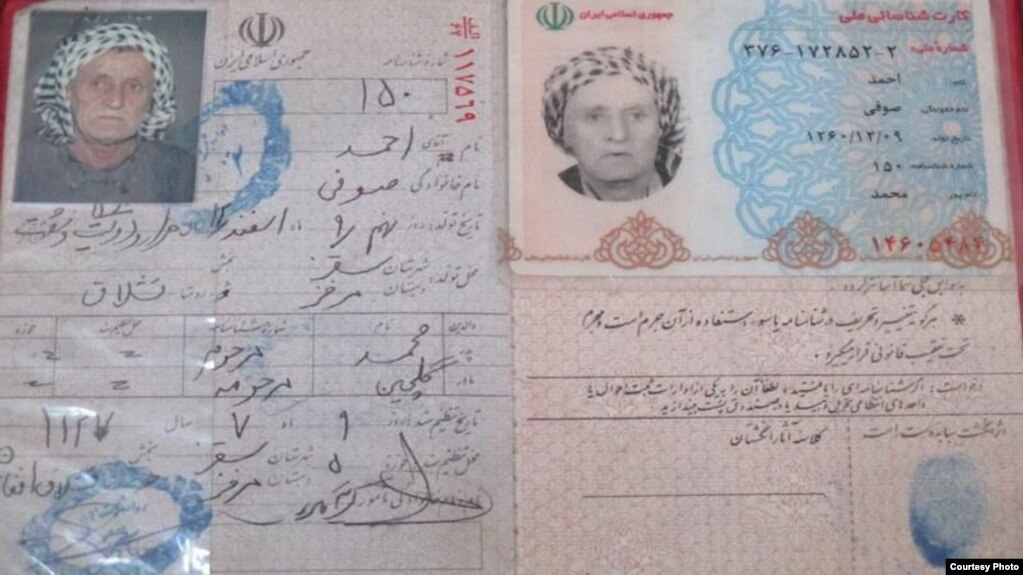 جمهوری اسلامی ایران
شماره شناسنامه
الف
۶۷
۱۱۷۵۶۹
۱۵۰
نام آقای احمد
نام خانوادگی صوفی
تاریخ تولد: روز نهم ۹ ماه اسفند
محل تولد: شهرستان سقز بخش
دهستان مرکز روستا قشلاق
والدین نام شماره شناسنامه محل تنظیم سند حوزه
پدر محمد مرحوم
مادر گلچین مرحومه
تاریخ تنظیم سند: روز ۹ ماه ۷ سال
محل تنظیم سند: حوزه ۵ شهرستان سقز بخش
دهستان مرکز
مأمور
جمهوری اسلامی ایران
کارت شناسائی ملی
شماره ملی: ۳۷۶-۱۷۲۸۵۲-۲
نام: احمد
نام خانوادگی: صوفی
تاریخ تولد: ۱۲۶۰/۱۲/۰۹
شماره شناسنامه: ۱۵۰
نام پدر: محمد
۱۴۶۰۵۴۸۴
کارت شناسائی ملی جمهوری اسلامی ایران
* هرگونه تغییر و تحریف در شناسنامه یا سوء استفاده از آن جرم است و مجرم
تحت تعقیب قانونی قرار میگیرد.
درخواست: اگر شناسنامه‌ای را یافتید لطفاً آن را به یکی از ادارات ثبت احوال یا
واحدهای انتظامی تحویل دهید یا در صندوق پست بیندازید.
کلاسه آثار انگشتان
اثر انگشت سبابه دست است
Courtesy Photo